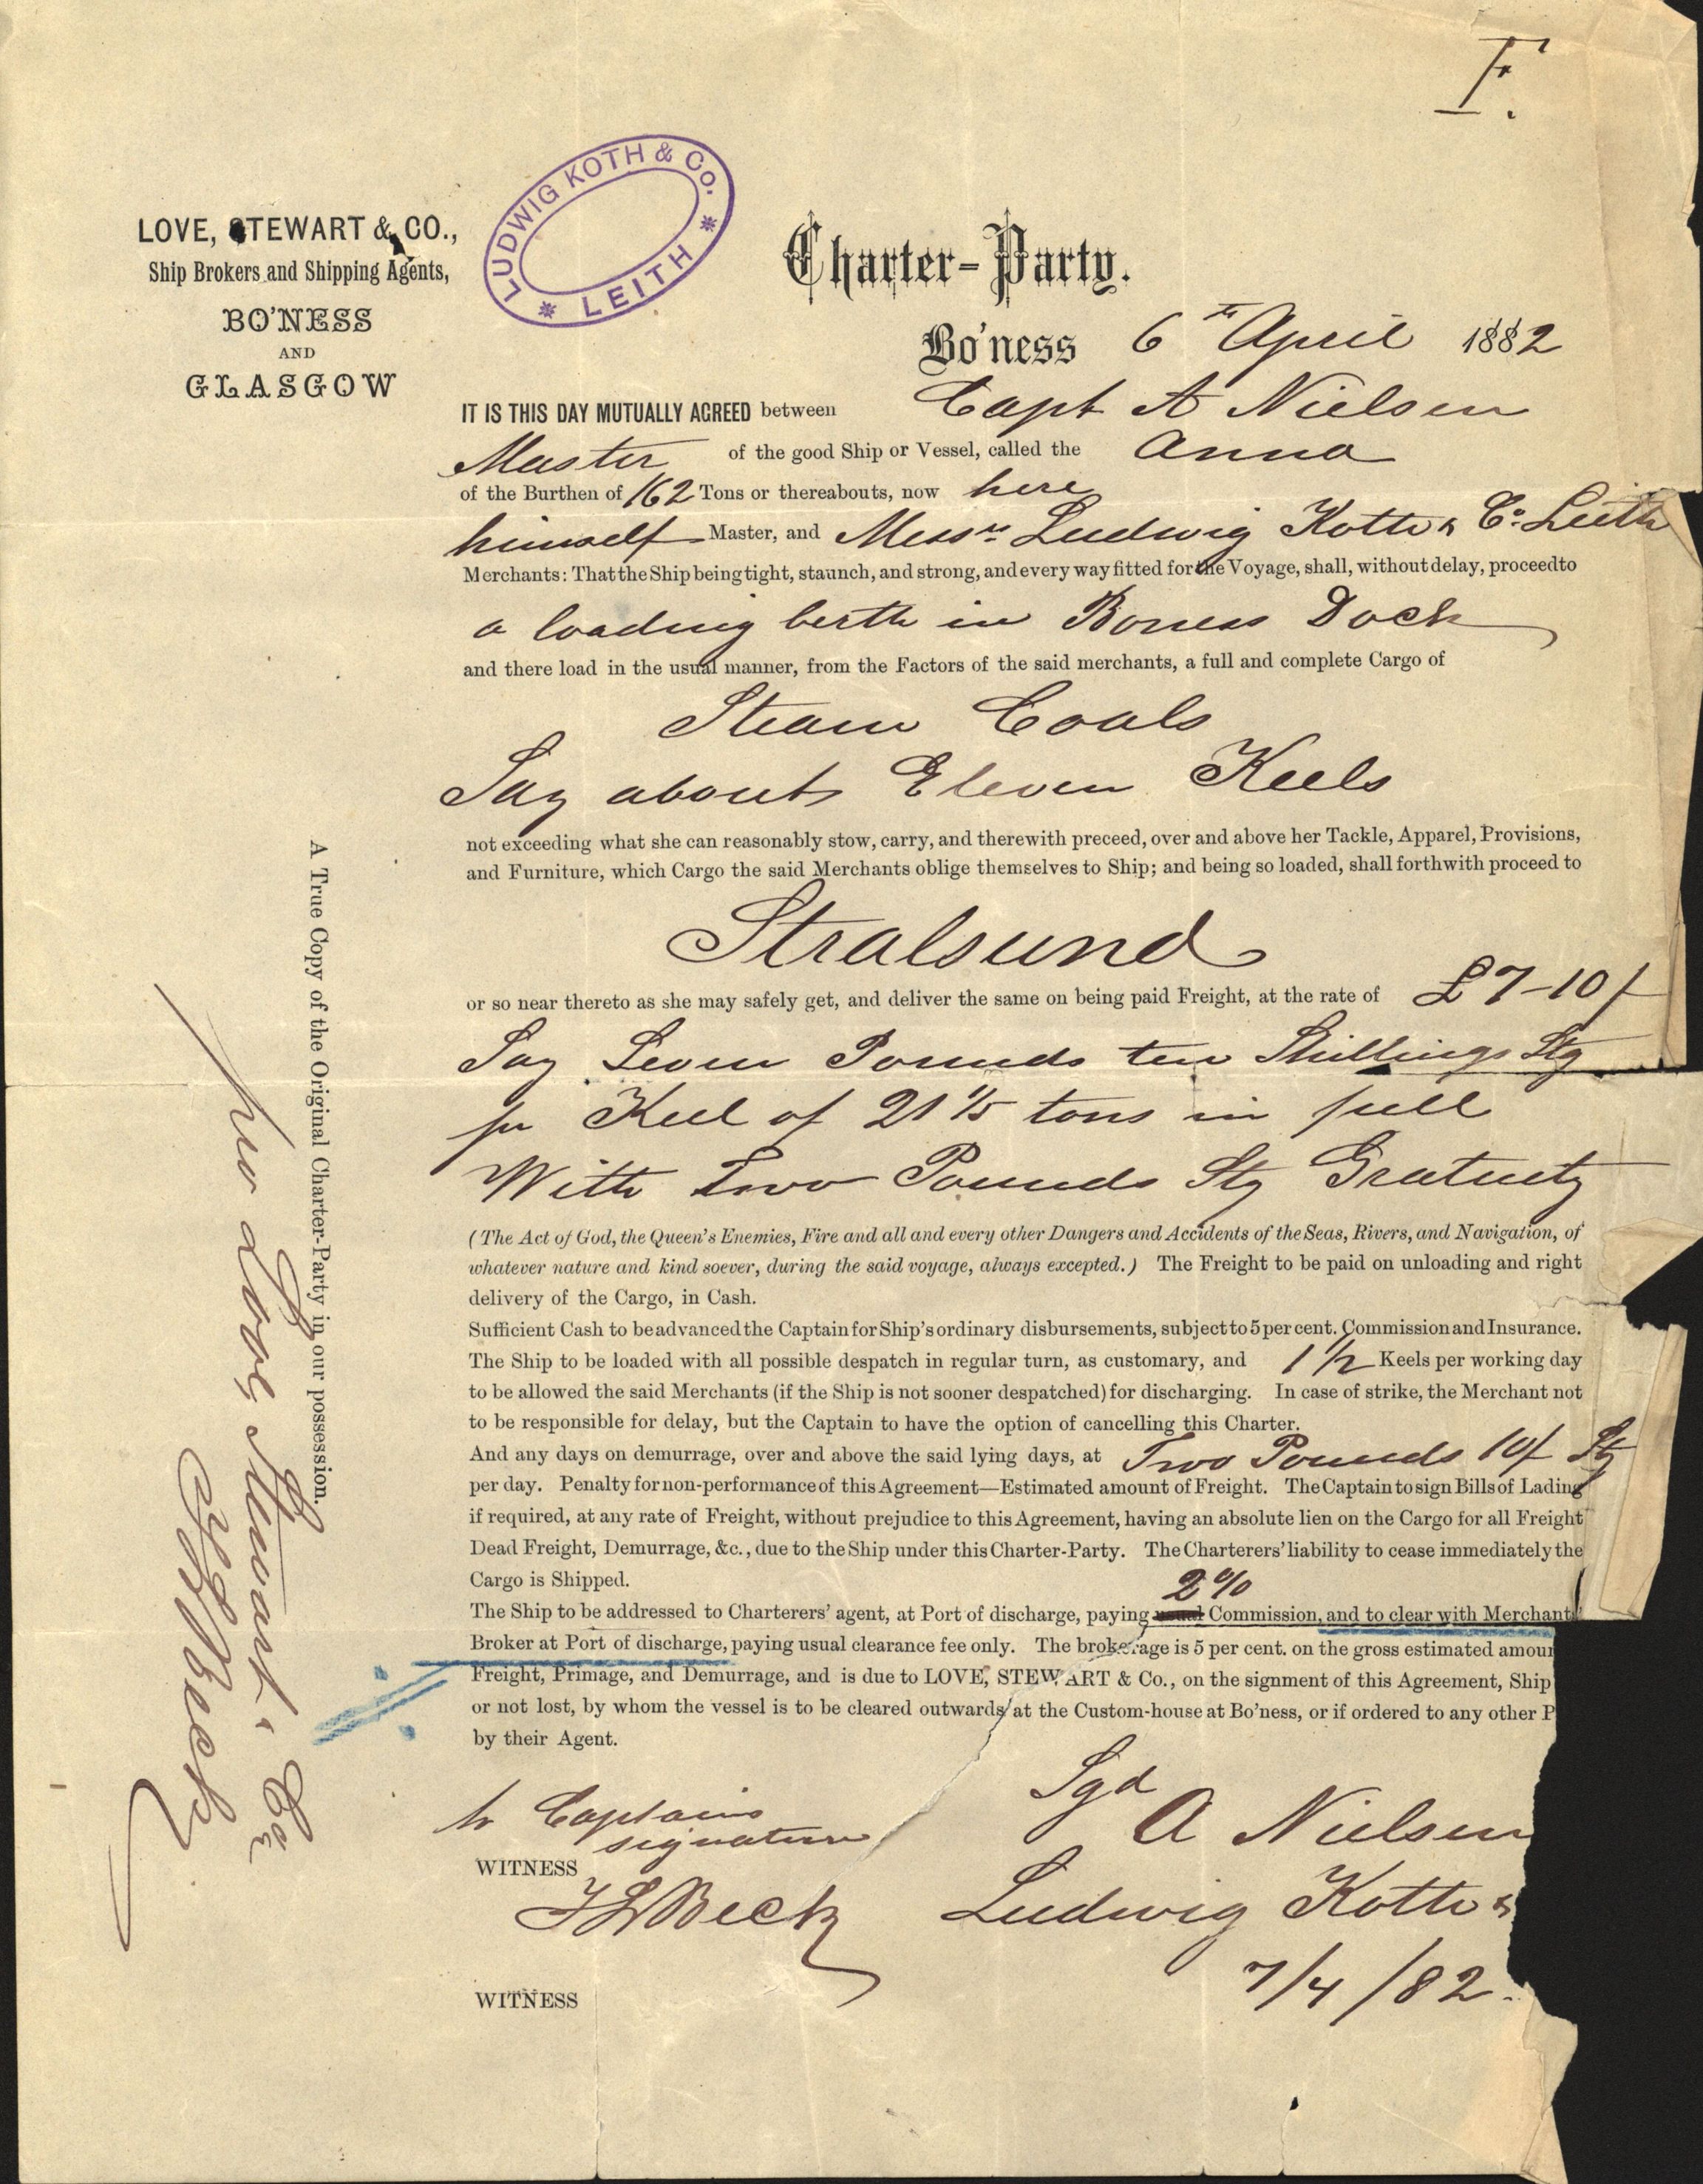 F.
LUDWIG KOTH & Co.
* LEITH *
LOVE, STEWART & CO.,
Ship Brokers and Shipping Agents,
BO'NESS
AND
GLASGOW
Charter-Party.
Bo'ness 6th April 1882
IT IS THIS DAY MUTUALLY AGREED between Capt A Nielsen
Master of the good Ship or Vessel, called the Anna
of the Burthen of 162 Tons or thereabouts, now here
himself Master, and Messrs Ludwig Koth & Co Leith
Merchants: That the Ship being tight, staunch, and strong, and every way fitted for the Voyage, shall, without delay, proceed to
a loading berth in Boness Dock
and there load in the usual manner, from the Factors of the said merchants, a full and complete Cargo of
Steam Coals
Say about Eleven Keels
not exceeding what she can reasonably stow, carry, and therewith preceed, over and above her Tackle, Apparel, Provisions,
and Furniture, which Cargo the said Merchants oblige themselves to Ship; and being so loaded, shall forthwith proceed to
Stralsund
or so near thereto as she may safely get, and deliver the same on being paid Freight, at the rate of £7-10/
Say Seven Pounds ten Shillings Stg
pr Keel of 21 1/5 tons in full
With Two Pounds Stg Gratuity
(The Act of God, the Queen's Enemies, Fire and all and every other Dangers and Accidents of the Seas, Rivers, and Navigation, of
whatever nature and kind soever, during the said voyage, always excepted.) The Freight to be paid on unloading and right
delivery of the Cargo, in Cash.
Sufficient Cash to be advanced the Captain for Ship's ordinary disbursements, subject to 5 per cent. Commission and Insurance.
The Ship to be loaded with all possible despatch in regular turn, as customary, and 1 1/2 Keels per working day
to be allowed the said Merchants (if the Ship is not sooner despatched) for discharging. In case of strike, the Merchant not
to be responsible for delay, but the Captain to have the option of cancelling this Charter.
And any days on demurrage, over and above the said lying days, at Two Pounds 10/ Stg
per day. Penalty for non-performance of this Agreement—Estimated amount of Freight. The Captain to sign Bills of Lading
if required, at any rate of Freight, without prejudice to this Agreement, having an absolute lien on the Cargo for all Freight
Dead Freight, Demurrage, &c., due to the Ship under this Charter-Party. The Charterers' liability to cease immediately the
Cargo is Shipped.
2%
The Ship to be addressed to Charterers' agent, at Port of discharge, paying usual Commission, and to clear with Merchants'
Broker at Port of discharge, paying usual clearance fee only. The brokerage is 5 per cent. on the gross estimated amoun
Freight, Primage, and Demurrage, and is due to LOVE, STEWART & Co., on the signment of this Agreement, Ship
or not lost, by whom the vessel is to be cleared outwards at the Custom-house at Bo'ness, or if ordered to any other P
by their Agent.
Sgd
to Captains A Nielsen
signature
WITNESS
Ludwig Koth &
7/4/82.
WITNESS
A True Copy of the Original Charter-Party in our possession.
pro Love, Stewart & Co